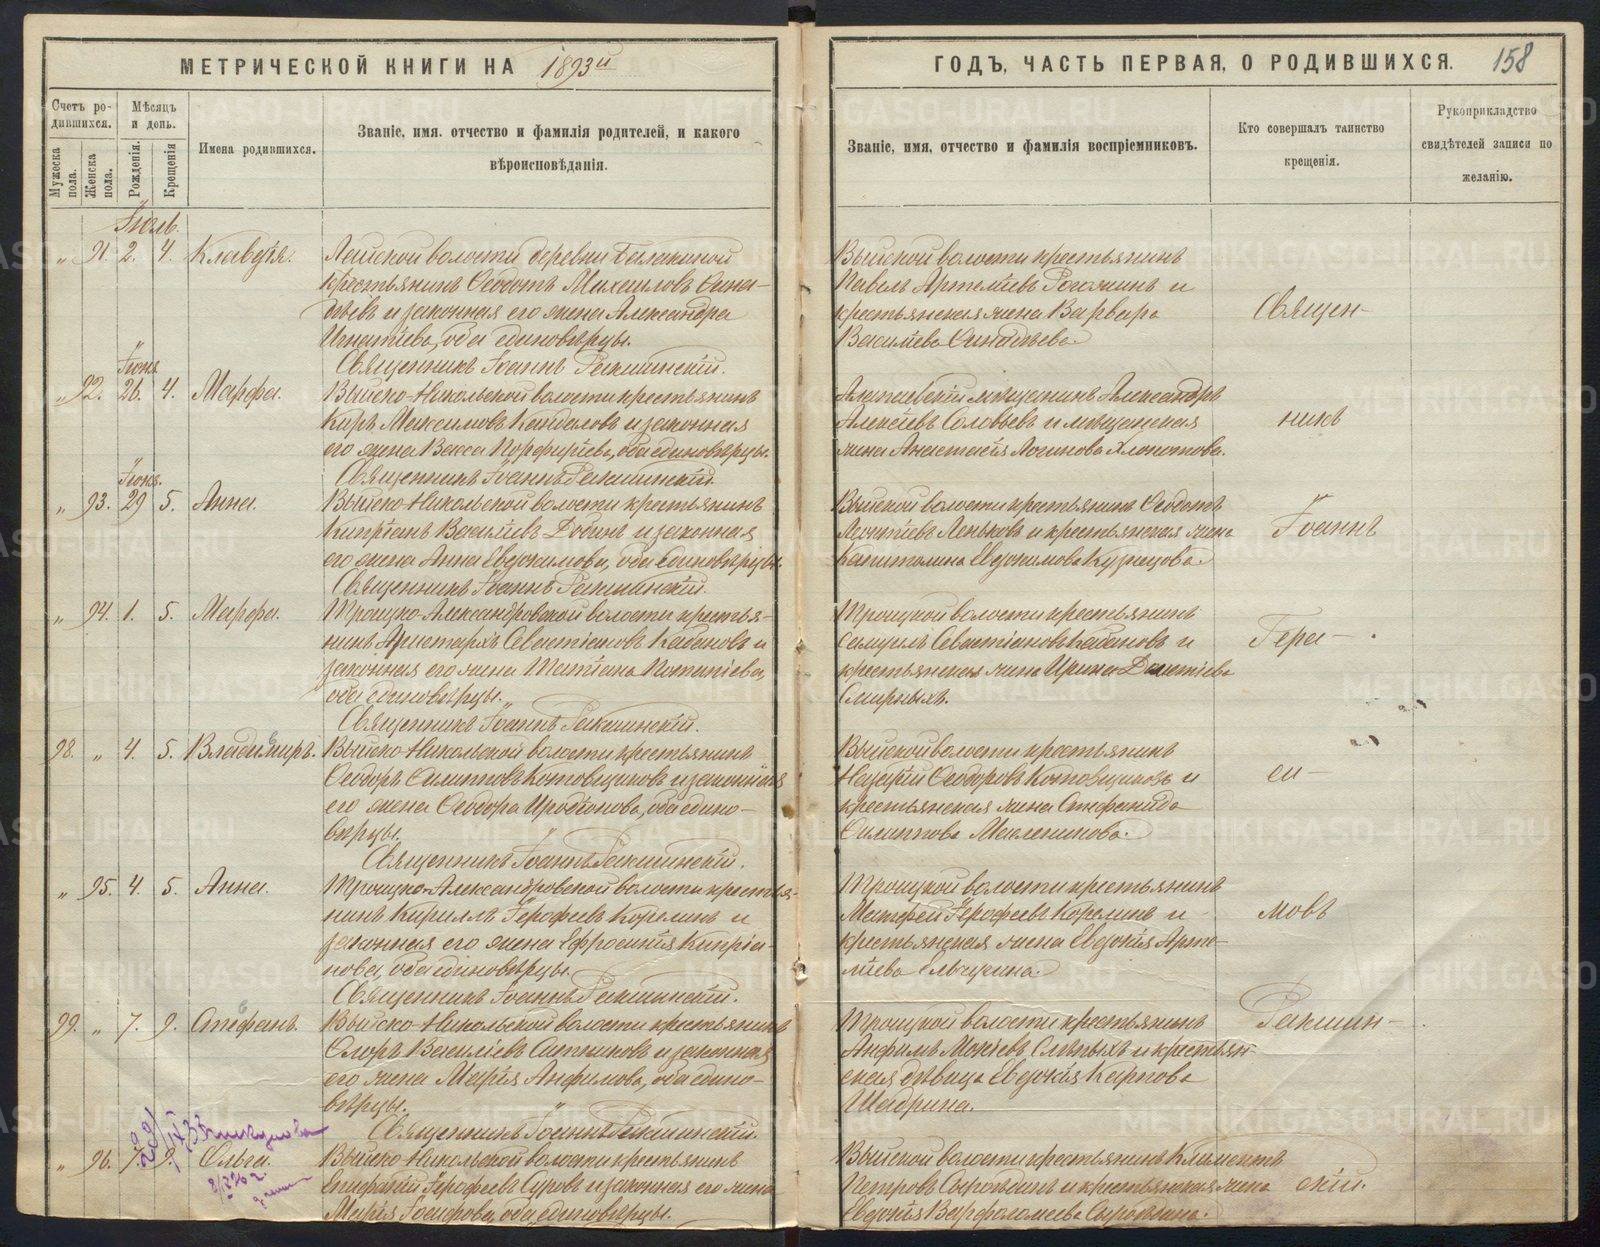 МЕТРИЧЕСКОЙ КНИГИ НА 1893й
ГОДЪ, ЧАСТЬ ПЕРВАЯ, О РОДИВШИХСЯ. 158
Счетъ родившихся.
Мужеска пола.
Женска пола.
Мѣсяцъ и день.
Рожденія.
Крещенія
Имена родившихся.
Званіе, имя, отчество и фамилія родителей, и какого
вѣроисповѣданія.
Званіе, имя, отчество и фамилія воспріемниковъ.
Кто совершалъ таинство
крещенія.
Рукоприкладство
свидѣтелей записи по
желанію.
Іюль.
" 91. 2. 4. Клавдія.
волости деревни
крестьянинъ Ѳеодотъ Михаиловъ Сина-
дѣевъ и законная его жена Александра
Игнатіева, оба единовѣрцы.
Священникъ Іоаннъ
Выйской волости крестьянинъ
Павелъ Артеміевъ Рогожинъ и
крестьянская жена Варвара
Василіева
Іюня
" 92. 26. 4. Марфа.
Выйско-Никольской волости крестьянинъ
Киръ Максимовъ и законная
его жена Васса Порфиріева, оба единовѣрцы.
Священникъ Іоаннъ
мѣщанинъ Александръ
Алексіевъ Соловьевъ и мѣщанская
жена Анастасія Логинова Хлопотова.
Іюня.
" 93. 29 5. Анна.
Выйско-Никольской волости крестьянинъ
Кипріанъ Василіевъ и законная
его жена Анна Евдокимова, оба единовѣрцы.
Священникъ Іоаннъ
Выйской волости крестьянинъ Ѳеодотъ
Леонтіевъ и крестьянская жена
Капитолина Евдокимова Кузнецова.
" 94. 1. 5. Марфа.
Троицко-Александровской волости крестья-
нинъ Аристархъ Севастіановъ Кабановъ и
законная его жена Татіана Потапіева,
оба единовѣрцы.
Священникъ Іоаннъ
Троицкой волости крестьянинъ
Самуилъ Севастіановъ Кабановъ и
крестьянская жена Ирина
Смирныхъ.
98. " 4. 5. Владиміръ.
Выйско-Никольской волости крестьянинъ
Ѳеодоръ Филипповъ Котовщиковъ и законная
его жена Ѳеодора Иродіонова, оба едино-
вѣрцы.
Священникъ Іоаннъ
Выйской волости крестьянинъ
Назарій Ѳеодоровъ Котовщиковъ и
крестьянская жена Стефанида
Филиппова
" 95. 4. 5. Анна.
Троицко-Александровской волости крестья-
нинъ Кириллъ Іерофеевъ Корелинъ и
законная его жена Ефросинія Кипріа-
нова, оба единовѣрцы.
Священникъ Іоаннъ
Троицкой волости крестьянинъ
Матфей Іерофеевъ Корелинъ и
крестьянская жена Евдокія Арте-
міева
99. " 7. 9. Стефанъ.
Выйско-Никольской волости крестьянинъ
Флоръ Василіевъ Ситниковъ и законная
его жена Марія Анфимова, оба едино-
вѣрцы.
Священникъ Іоаннъ
Троицкой волости крестьянинъ
Анфимъ Мокіевъ Слѣпыхъ и крестьян-
ская дѣвица Евдокія Карпова
Шадрина.
" 96. 7. 9. Ольга.
Выйско-Никольской волости крестьянинъ
Епифаній Іерофеевъ Суровъ и законная его жена
Марія Іосифова, оба единовѣрцы.
Выйской волости крестьянинъ Климентъ
Петровъ и крестьянская жена
Евдокія Варфоломеева
Священ-
никъ
Іоаннъ
Гера-
си-
мовъ
скій.
METRIKI.GASO-URAL.RU